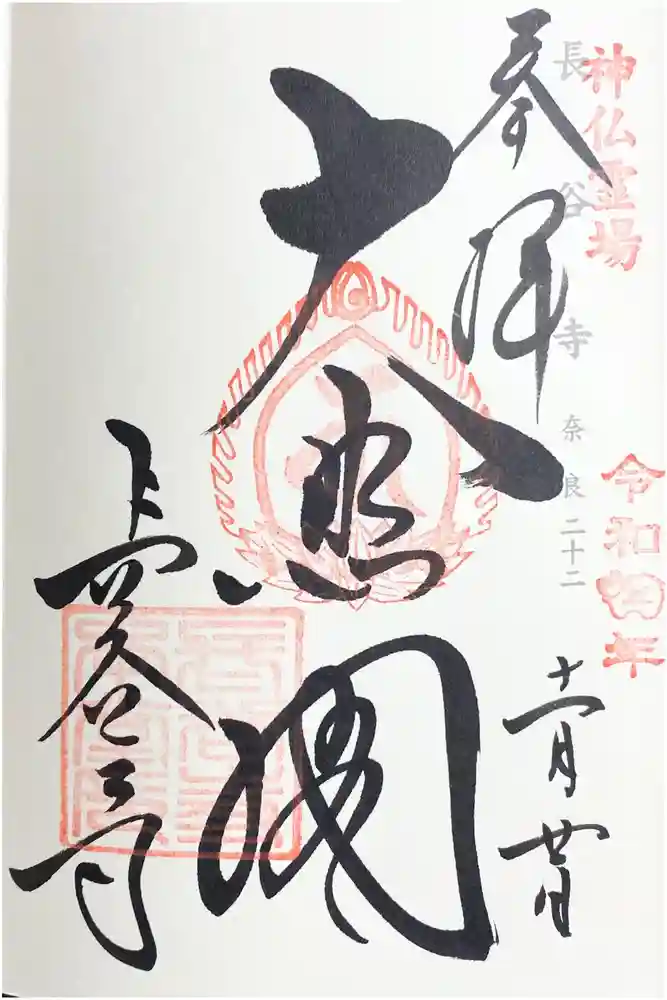 神仏霊場
長谷寺 奈良二十二
令和四年
奉拝
十一月
大悲閣
長谷寺